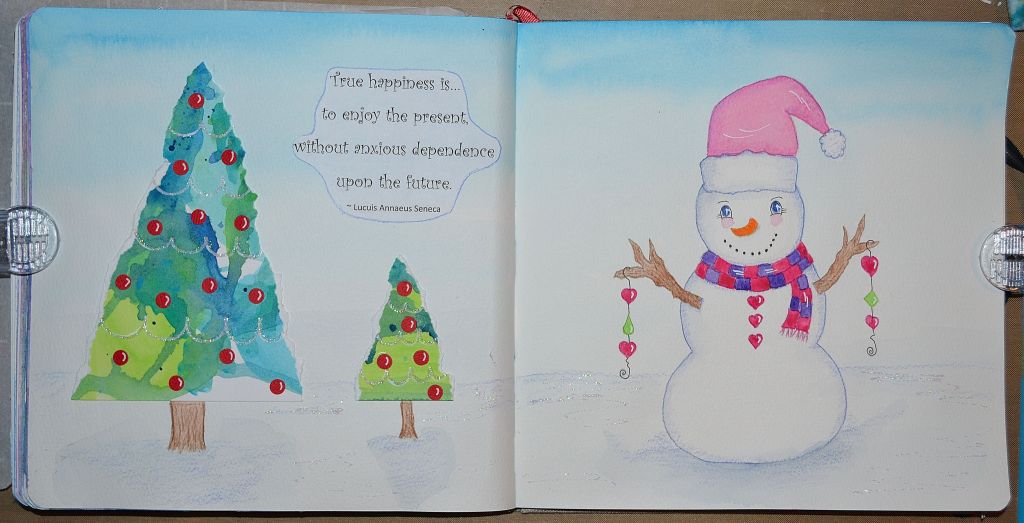 True happiness is...
to enjoy the present,
without anxious dependence
upon the future.
~ Lucuis Annaeus Seneca